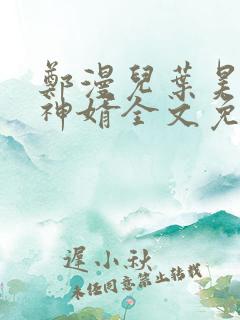 鄭漫兒葉昊
神婿全文免
遲小秋
未经同意禁止转载